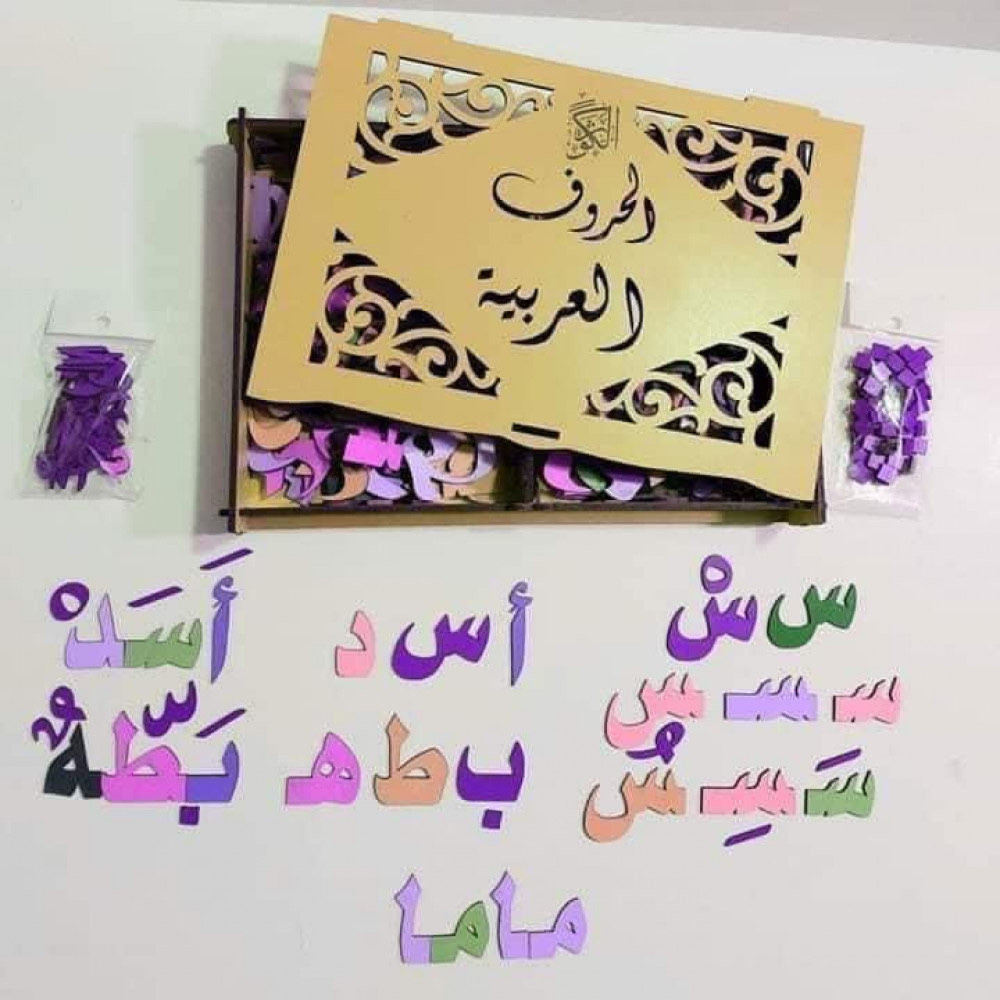 الحروف
العربية
س سْ
أ س د
أَسَدْ
سـ ـسـ ـس
سَـ ـسِـ ـسُ
ب ط هـ
بَطّةٌ
ماما